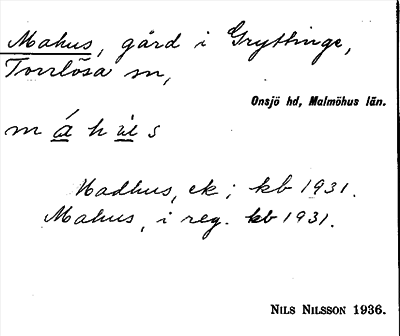 Mahus, gård i Gryttinge,
Torrlösa sn,
Onsjö hd, Malmöhus län.
m á h u s
Madhus, ek; kb 1931.
Mahus, i reg. kb 1931.
NILS NILSSON 1936.